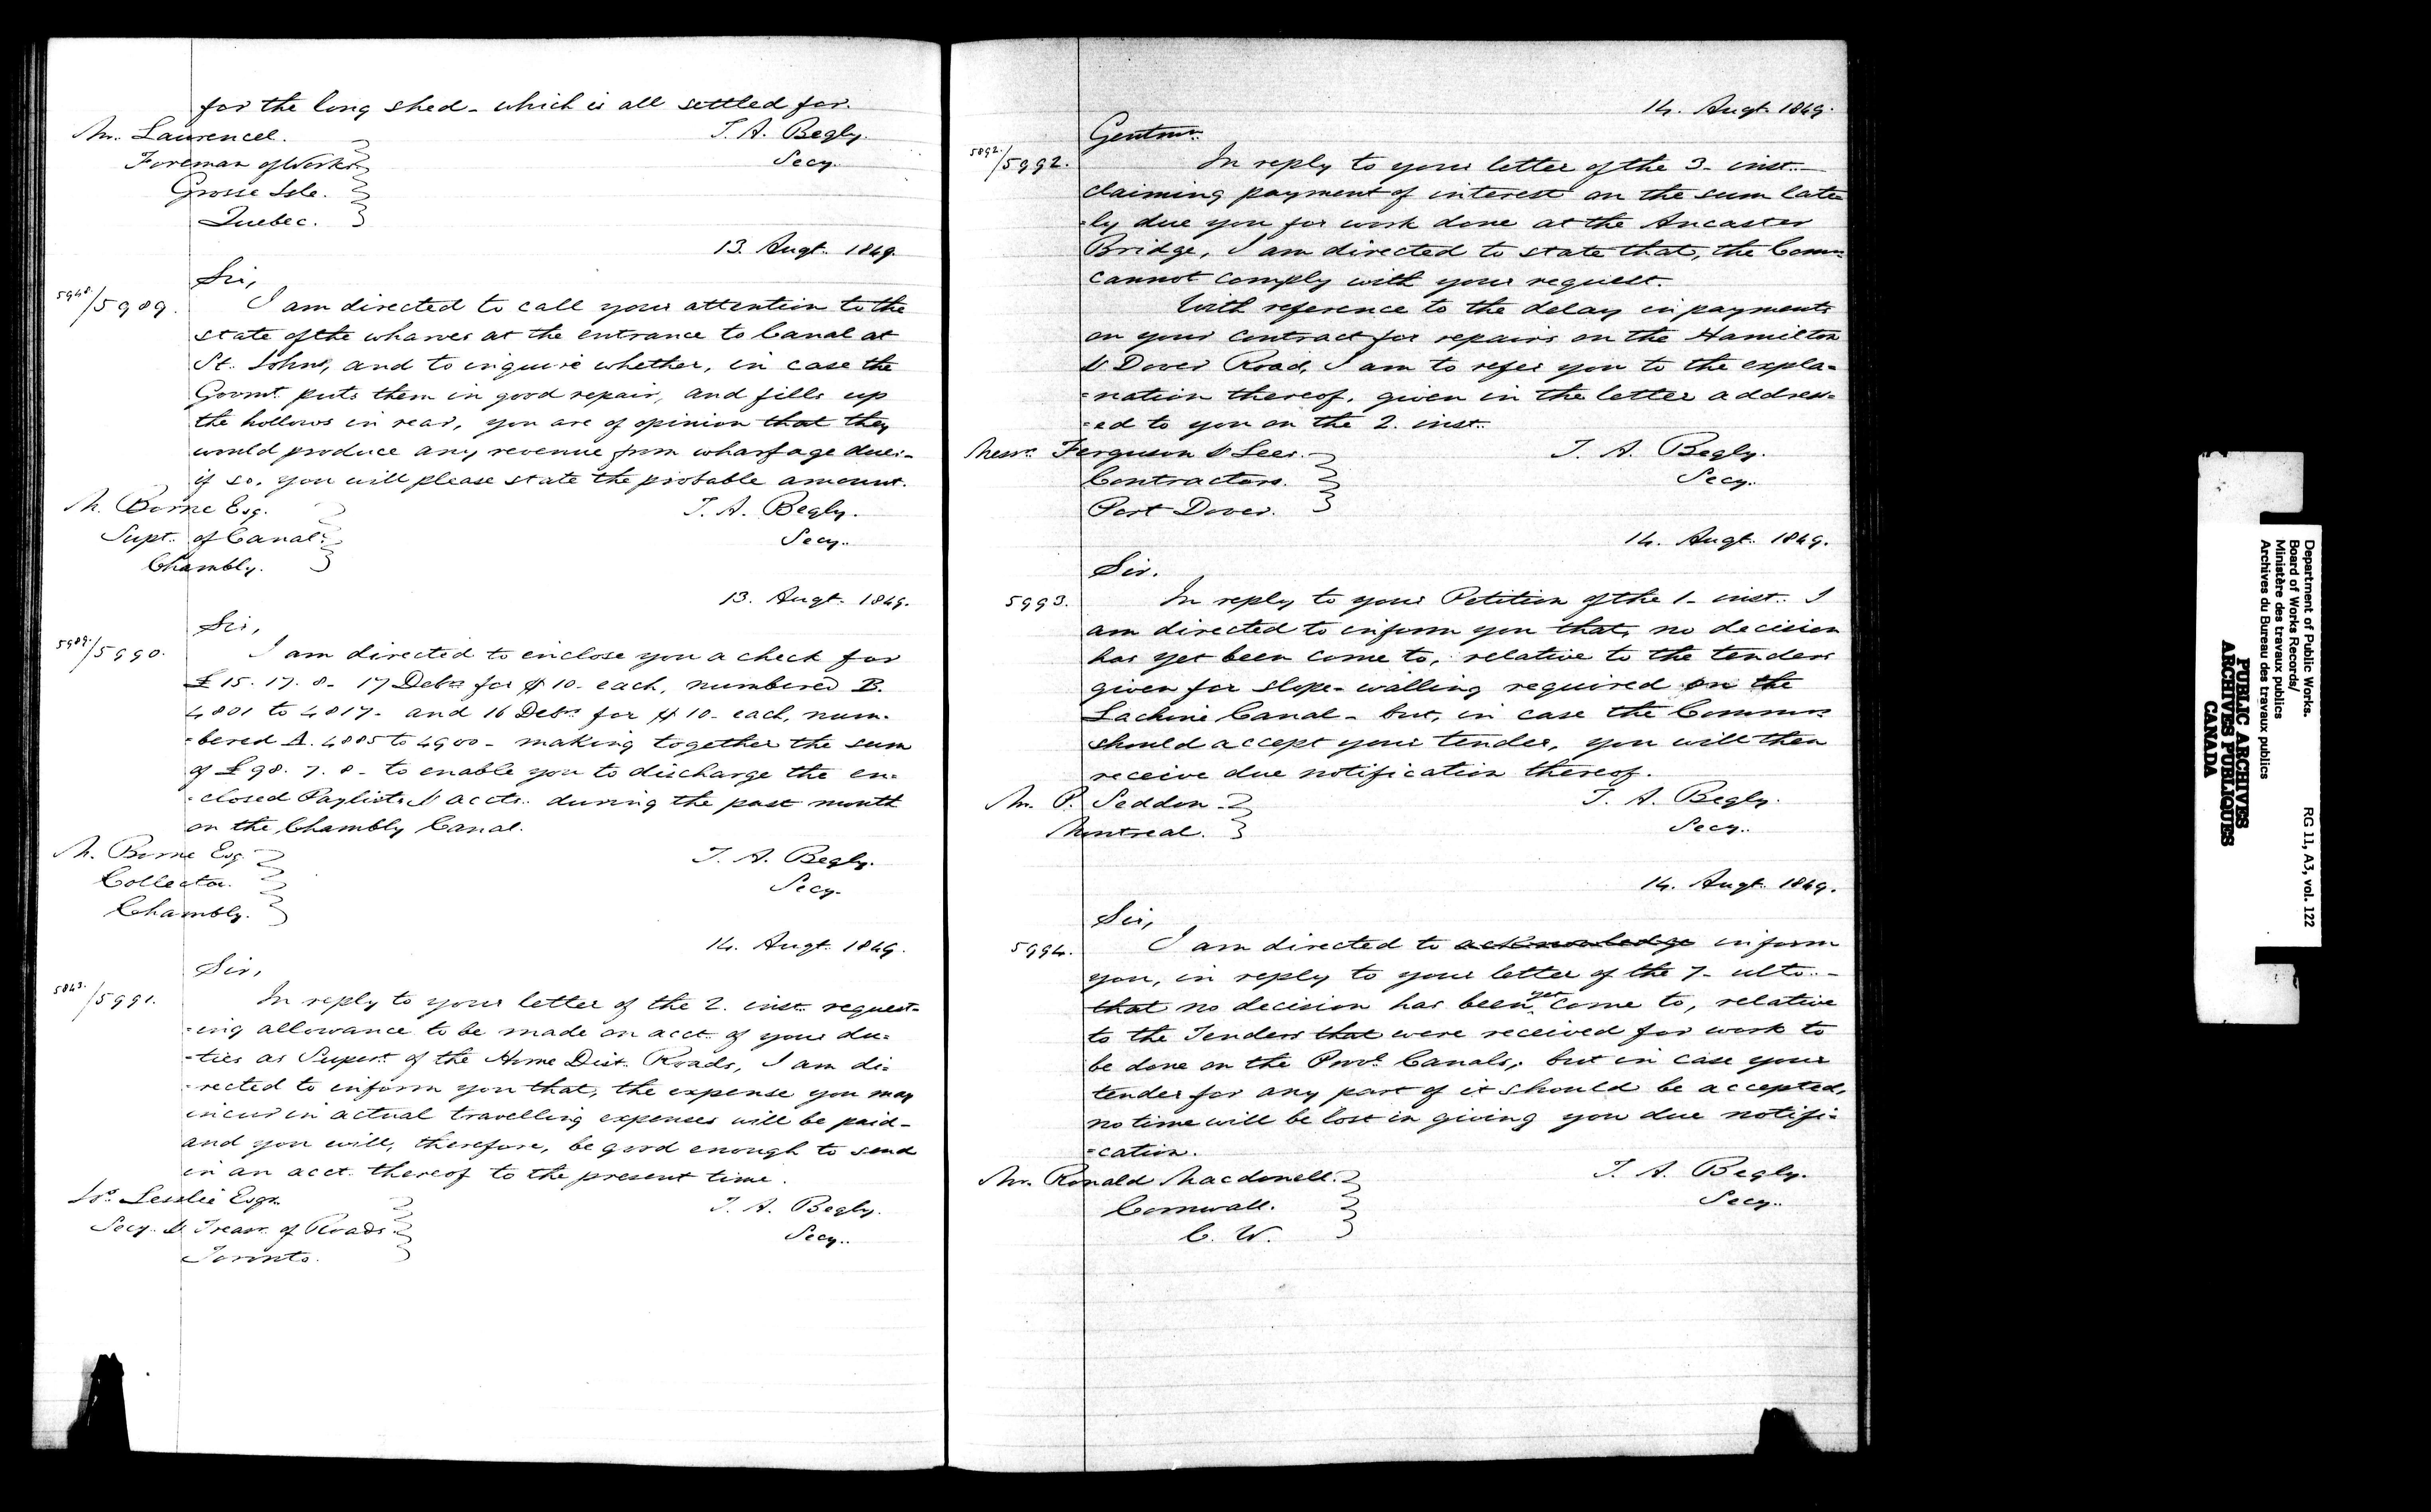 for the long shed - which is all settled for.
Mr. Laurencel.
T. A. Begly.
Foreman of Works
Secy.
Grosse Isle.
Quebec.
13. Augt. 1849.
Sir,
5948./5989.
I am directed to call your attention to the
state of the wharves at the entrance to Canal at
St. Johns, and to inquire whether, in case the
Govmt. puts them in good repair, and fills up
the hollows in rear, you are of opinion that they
would produce any revenue from wharfage dues -
if so, you will please state the probable amount.
M. Borne Esq.
T. A. Begly.
Supt. of Canal.
Secy.
Chambly.
13. Augt. 1849.
Sir,
5989./5990.
I am directed to enclose you a check for
£15. 17. 8 - 17 Debs for $10. each, numbered B.
4801 to 4817 - and 16 Debs for $10 - each, num-
-bered A. 4885 to 4900 - making together the sum
of £98. 7. 8 - to enable you to discharge the en-
-closed Paylists & accts. during the past month
on the Chambly Canal.
M. Borne Esq.
T. A. Begly.
Collector.
Secy.
Chambly.
14. Augt. 1849.
Sir,
5843./5991.
In reply to your letter of the 2. inst. request-
-ing allowance to be made on acct. of your du-
-ties as Supert. of the Home Dist. Roads, I am di-
-rected to inform you that, the expense you may
incur in actual travelling expenses will be paid -
and you will, therefore, be good enough to send
in an acct. thereof to the present time.
Js. Lesslie Esqr.
T. A. Begly.
Secy. & Treasr. of Roads
Secy.
Toronto.
14. Augt. 1849.
Gentmn.
5892./5992.
In reply to your letter of the 3 - inst. -
claiming payment of interest on the sum late-
-ly due you for work done at the Ancaster
Bridge, I am directed to state that, the Comrs
cannot comply with your request.
With reference to the delay in payments
on your contract for repairs on the Hamilton
& Dover Road, I am to refer you to the expla-
-nation thereof, given in the letter address-
-ed to you on the 2. inst.
Messrs. Ferguson & Lees.
T. A. Begly.
Contractors.
Secy.
Port Dover.
14. Augt. 1849.
Sir.
5993.
In reply to your Petition of the 1 - inst. I
am directed to inform you that, no decision
has yet been come to, relative to the tenders
given for slope-walling required on the
Lachine Canal - but, in case the Commrs
should accept your tender, you will then
receive due notification thereof.
Mr. P. Seddon -
T. A. Begly.
Montreal.
Secy.
14. Augt. 1849.
Sir,
5994.
I am directed to acknowledge inform
you, in reply to your letter of the 7 - ulto. -
that no decision has been yet come to, relative
to the Tenders that were received for work to
be done on the Provl. Canals; but in case your
tender for any part of it should be accepted,
no time will be lost in giving you due notifi-
-cation.
Mr. Ronald Macdonell.
T. A. Begly.
Cornwall.
Secy.
C. W.
Department of Public Works.
Board of Works Records/
Ministère des travaux publics
Archives du Bureau des travaux publics
RG 11, A3, vol. 122
PUBLIC ARCHIVES
ARCHIVES PUBLIQUES
CANADA